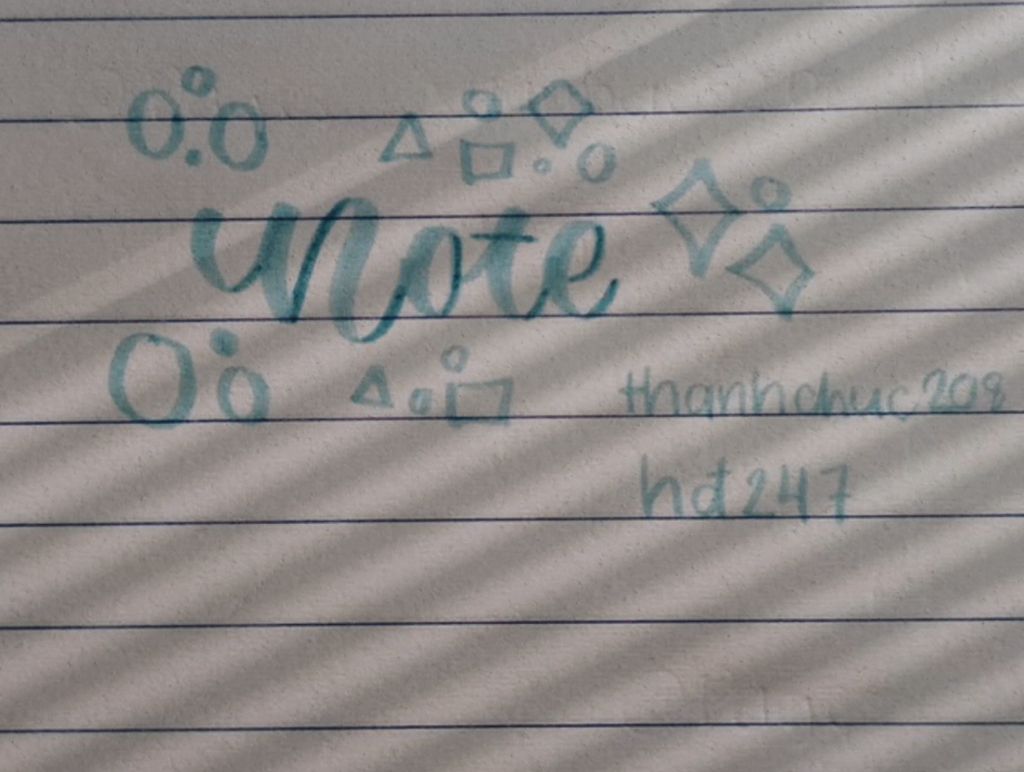 note
thanhchuc208
hd247